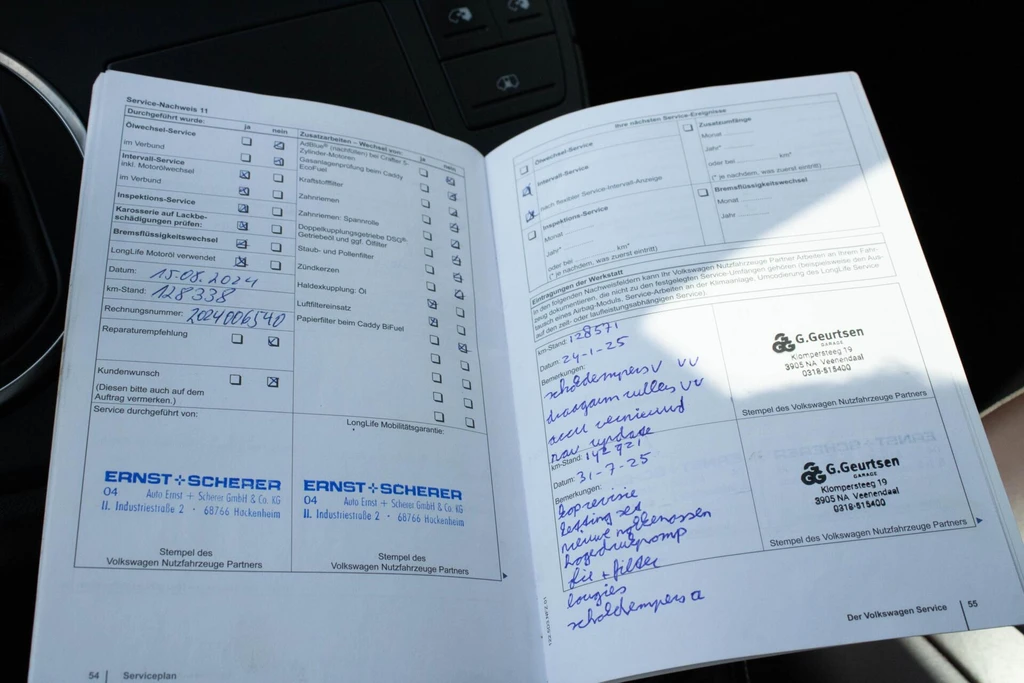 Service-Nachweis 11
Durchgeführt wurde: ja nein
Ölwechsel-Service
im Verbund
Intervall-Service
inkl. Motorölwechsel
im Verbund
Inspektions-Service
Karosserie auf Lackbe-
schädigungen prüfen:
Bremsflüssigkeitswechsel
LongLife Motoröl verwendet
Datum: 15.08.2024
km-Stand: 128338
Rechnungsnummer: 2024006540
Reparaturempfehlung
Kundenwunsch
(Diesen bitte auch auf dem
Auftrag vermerken.)
Service durchgeführt von:
ERNST+SCHERER
04 Auto Ernst + Scherer GmbH & Co. KG
II. Industriestraße 2 · 68766 Hockenheim
Stempel des
Volkswagen Nutzfahrzeuge Partners
Zusatzarbeiten – Wechsel von: ja nein
AdBlue® (nachfüllen) bei Crafter 5-
Zylinder-Motoren
Gasanlagenprüfung beim Caddy
EcoFuel
Kraftstofffilter
Zahnriemen
Zahnriemen: Spannrolle
Doppelkupplungsgetriebe DSG®:
Getriebeöl und ggf. Ölfilter
Staub- und Pollenfilter
Zündkerzen
Haldexkupplung: Öl
Luftfiltereinsatz
Papierfilter beim Caddy BiFuel
LongLife Mobilitätsgarantie:
ERNST+SCHERER
04 Auto Ernst + Scherer GmbH & Co. KG
II. Industriestraße 2 · 68766 Hockenheim
Stempel des
Volkswagen Nutzfahrzeuge Partners
54 | Serviceplan
Ihre nächsten Service-Ereignisse
Ölwechsel-Service
Intervall-Service
nach flexibler Service-Intervall-Anzeige
Inspektions-Service
Monat
Jahr*
oder bei km*
(* je nachdem, was zuerst eintritt)
Zusatzumfänge
Monat
Jahr*
(oder bei km*
(* je nachdem, was zuerst eintritt)
Bremsflüssigkeitswechsel
Monat
Jahr
Eintragungen der Werkstatt
In den folgenden Nachweisfeldern kann Ihr Volkswagen Nutzfahrzeuge Partner Arbeiten an Ihrem Fahr-
zeug dokumentieren, die nicht zu den festgelegten Service-Umfängen gehören (beispielsweise den Aus-
tausch eines Airbag-Moduls, Service-Arbeiten an der Klimaanlage, Umcodierung des LongLife Service
auf den zeit- oder laufleistungsabhängigen Service).
km-Stand: 128571
Datum: 24-1-25
Bemerkungen:
schokdempers V VV
draagarm rubbers VV
accu vernieuwd
nav update
G.Geurtsen
GARAGE
Klompersteeg 19
3905 NA Veenendaal
0318-515400
Stempel des Volkswagen Nutzfahrzeuge Partners
km-Stand: 142921
Datum: 31-7-25
Bemerkungen:
koprevisie
nieuwe nokkenassen
hogedrukpomp
olie + filter
bougies
schokdempers a
G.Geurtsen
GARAGE
Klompersteeg 19
3905 NA Veenendaal
0318-515400
Stempel des Volkswagen Nutzfahrzeuge Partners
Der Volkswagen Service | 55